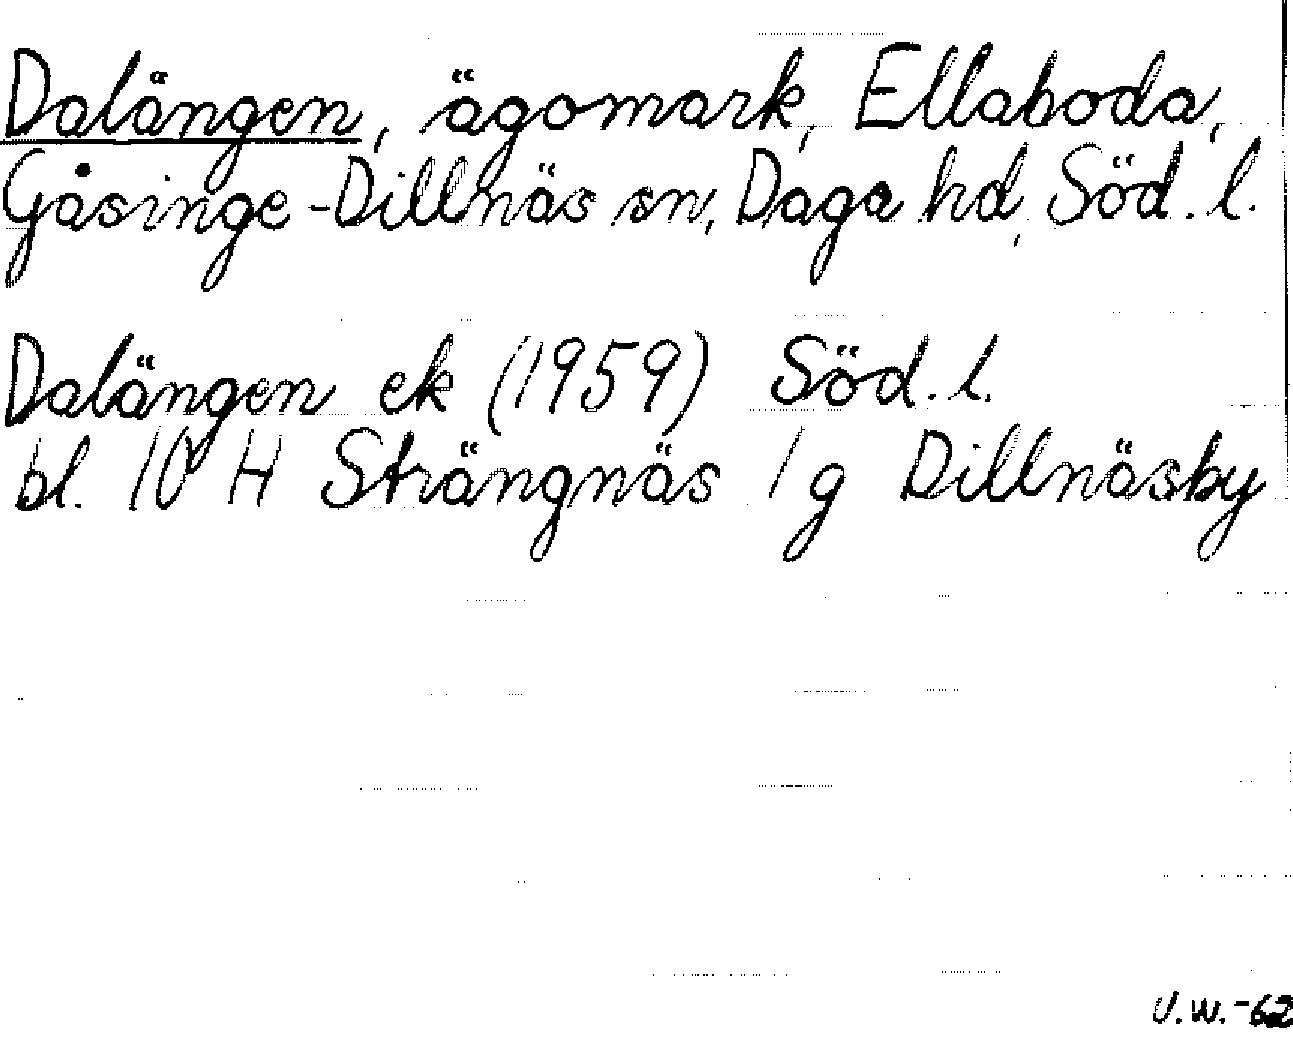 Dalängen, ägomark, Ellaboda,
Gåsinge-Dillnäs sn, Daga hd, Söd. l.
Dalängen ek (1959) Söd. l.
bl. 10 H Strängnäs 1 g Dillnäsby
U.W.-62